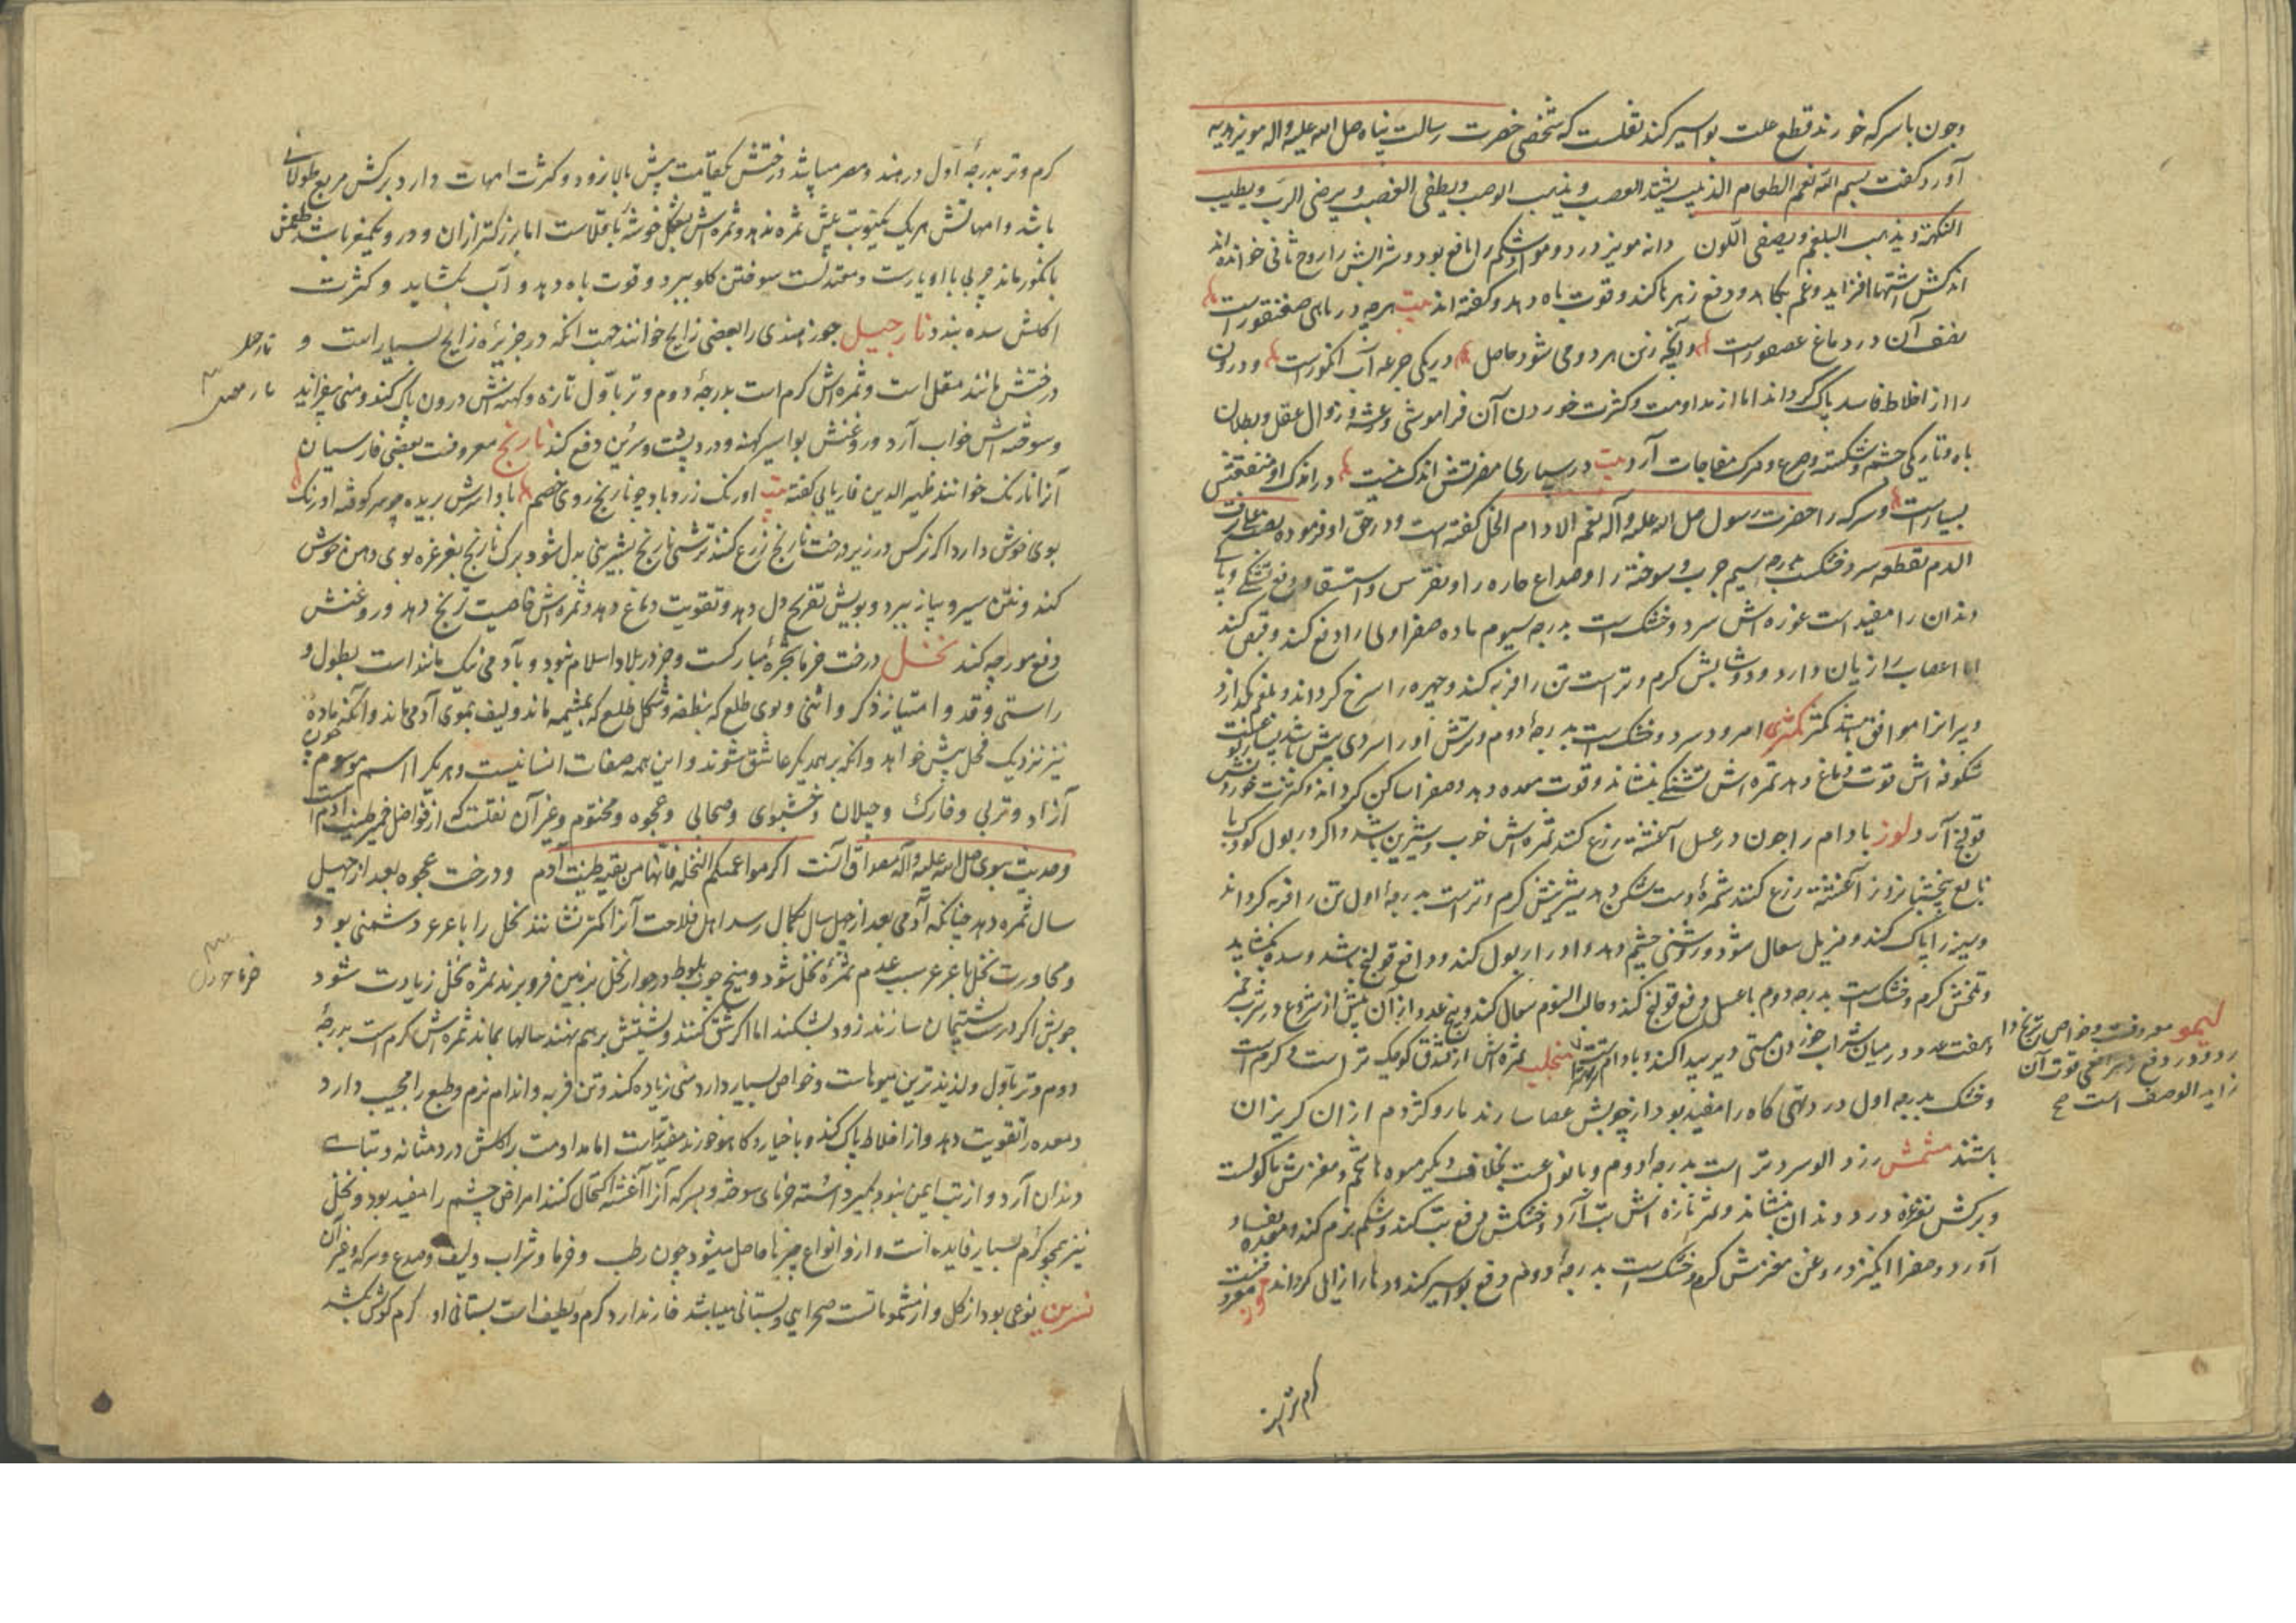 وجون با سرکه خورند قطع علت بواسیر کند نقلست که شخصی حضرت رسالت پناه صلی الله علیه واله مویز هدیه
آورد کفت بسم الله نعم الطعام الذبیب یشد العصب و یذهب الوصب ویطفی الغضب و یرضی الرب ویطیب
النکهة ویذهب البلغم ویصفی اللون دانه مویز درد و مواد شکم را نافع بود و شرابش را روح ثانی خوانده اند
اندکش اشتها افزاید و غم بکاهد و دفع زهرها کند و قوت باه دهد و کفته اند بیت هرچه در ماهی سقنقورست
نصف آن در دماغ عصفورست وآنچه زین هر دو می شود حاصل در یکی جرعه آب انکورست و درون
را از اخلاط فاسد پاک کرداند اما از مداومت و کثرت خوردن آن فراموشی و رعشه و زوال عقل و بطلان
باه و تاریکی چشم و سکته و صرع و مرک مفاجات آرد بیت در بسیاری مضرتش اندک نیست در اندک او منفعتش
بسیارست وسرکه را حضرت رسول صلی الله علیه وآله نعم الادام الخل کفته است و در حق او فرموده
الدم نقطعه سرد و خشکست بدرجه سیم جرب و سوخته را و صداع حاره را و نقرس و استسقا و دفع تشنکی و
دندان را مفید است غوره اش سرد و خشک است بدرجه سیوم ماده صفراوی را دفع کند و قبض کند
اما اعصاب را زیان دارد و دوشابش کرم و تر است تن را فربه کند و چهره را سرخ کرداند و بلغم بکدازد
وپیرانرا موافق بود کمثری امرود سرد و خشک است بدرجه دوم و ترش او را سردی بیش باشد
شکوفه اش قوت دماغ دهد ثمره اش تشنکی بنشاند و قوت معده دهد و صفرا ساکن کرداند و کثرت خوردنش
قولنج آرد لوز بادام را چون در عسل آغشته زرع کنند ثمره اش خوب و شیرین باشد و اکر در بول کودک
نابالغ پنج شبانروز آغشته زرع کنند ثمره اوست شکن دهد شیرینش کرم و تر است بدرجه اول تن را فربه کرداند
وسینه را پاک کند و مزیل سعال شود و روشنی چشم دهد و ادرار بول کند و دافع قولنج باشد و سده بکشاید
و تلخش کرم و خشک است بدرجه دوم با عسل دفع قولنج کند و حالت النوم سعال کند و پنج عدد از آن پیش از شروع در شرب خمر
وهفت عدد در میان شراب خوردن مستی دیر پیدا کند محلب ثمره اش از فندق کوچک تر است و کرم است
و خشک بدرجه اول درد تهی کاه را مفید بود از چوبش عصا سازند مار و کژدم از آن کریزان
باشند مشمش زرد الو سرد و تر است بدرجه دوم و بخلاف دیکر میوه ها تخم و مغزش ماکولست
وبرکش بغرغره درد دندان بنشاند و ثمر تازه اش تب آرد و خشکش دفع تب کند و شکم نرم کند و معده
آورد و صفرا انکیزد و روغن مغزش کرم و خشک است بدرجه دوم دفع بواسیر کند و
موز
لیمو معروفست و خواص ترنج دارد
و در دفع زهر افعی قوت آن
زاید الوصف است صح
کرم و تر بدرجه
کرم و تر بدرجه اول در هند و مصر میباشد درختش یکقامت بیش بالا نرود و کثرت امهات دارد برکش مربع طولانی
باشد و امهاتش هر یک یکنوبت بیش ثمره ندهد و ثمره اش بشکل خوشه باقلاست اما بزرکتر از آن و در و یکمغز باشد طعمش
بانکور ماند چربی با او یارست و معتدلست سوختن کلو ببرد و قوت باه دهد و آب بکشاید و کثرت
اکلش سده بندد نارجیل جوز هندی را بعضی زابج خوانند جهت انکه در جزیره زابج بسیار است و
درختش مانند مقل است و ثمره اش کرم است بدرجه دوم و تر باول تازه و کهنه اش درون پاک کند و منی بیفزاید
وسوخته اش خواب آرد و روغنش بواسیر کهنه و درد پشت و سرین دفع کند نارنج معروفست بعضی فارسیان
آنرا نارنک خوانند ظهیر الدین فاریابی کفته بیت اورنک زرد باد چو نارنج روی خصم بادا سرش بریده چو سر کوفته اورنک
بوی خوش دارد اکر نرکس در زیر درخت نارنج زرع کنند ترشی نارنج بشیرینی بدل شود برک نارنج بغرغره بوی دهن خوش
کند و نتن سیر و پیاز ببرد و بویش تفریح دل دهد و تقویت دماغ دهد و ثمره اش خاصیت ترنج دهد و روغنش
دفع مورچه کند نخل درخت خرما شجره مبارکست و جز در بلاد اسلام نبود و بآدمی نیک مانند است بطول و
راستی و قد و امتیاز ذکر و انثی و بوی طلع که بنطفه و شکل طلع که بمشیمه ماند و لیف بموی آدمی ماند وانکه ماده
نیز نزدیک فحل پیش خواهد وانکه بر همدیکر عاشق شوند و این همه صفات انسانیست و هر یکرا اسم موسوم چون
آزاد و تربی و فارک و جیلان و خشبوی و صحالی و عجوه و مختوم و غیر آن نقلست که از فواضل خمیر طینت آدم است
وحدیث نبوی صلی الله علیه وآله مصداق آنست اکرموا عمتکم النخلة فانها من بقیة طینت آدم و درخت عجوه بعد از چهل
سال ثمره دهد چنانکه آدمی بعد از چهل سال بکمال رسد اهل فلاحت آنرا کمتر نشانند نخل را با عرعر دشمنی بود
ومجاورت نخل با عرعر سبب عدم ثمره نخل شود و میخ چوب بلوط در جوار نخل بزمین فرو برند ثمره نخل زیادت شود
چوبش اکر درست شتیمان سازند زود بشکند اما اکر شق کنند و پشتش بر هم نهند سالها بماند ثمره اش کرم است بدرجه
دوم و تر باول و لذیذترین میوهاست و خواص بسیار دارد منی زیاده کند و تن فربه و اندام نرم و طبع را مجیب دارد
ومعده را تقویت دهد و از اخلاط پاک کند و با خیار و کاهو خورند مفیدتر است اما مداومت بر اکلش درد مثانه و تباهی
دندان آرد و از تب ایمن نبود بکیرد استه خرمای سوخته و بسرکه آنرا آغشته اکتحال کنند امراض چشم را مفید بود و نخل
نیز همچو کرم بسیار فایده است و ازو انواع چیزها حاصل میشود چون رطب و خرما و شراب و لیف و صدع و سرکه و غیر آن
نسرین نوعی بود از کل و از مشموماتست صحرایی و بستانی میباشد خار ندارد کرم و لطیف است بستانی او
نارجیل
خرما خوردن